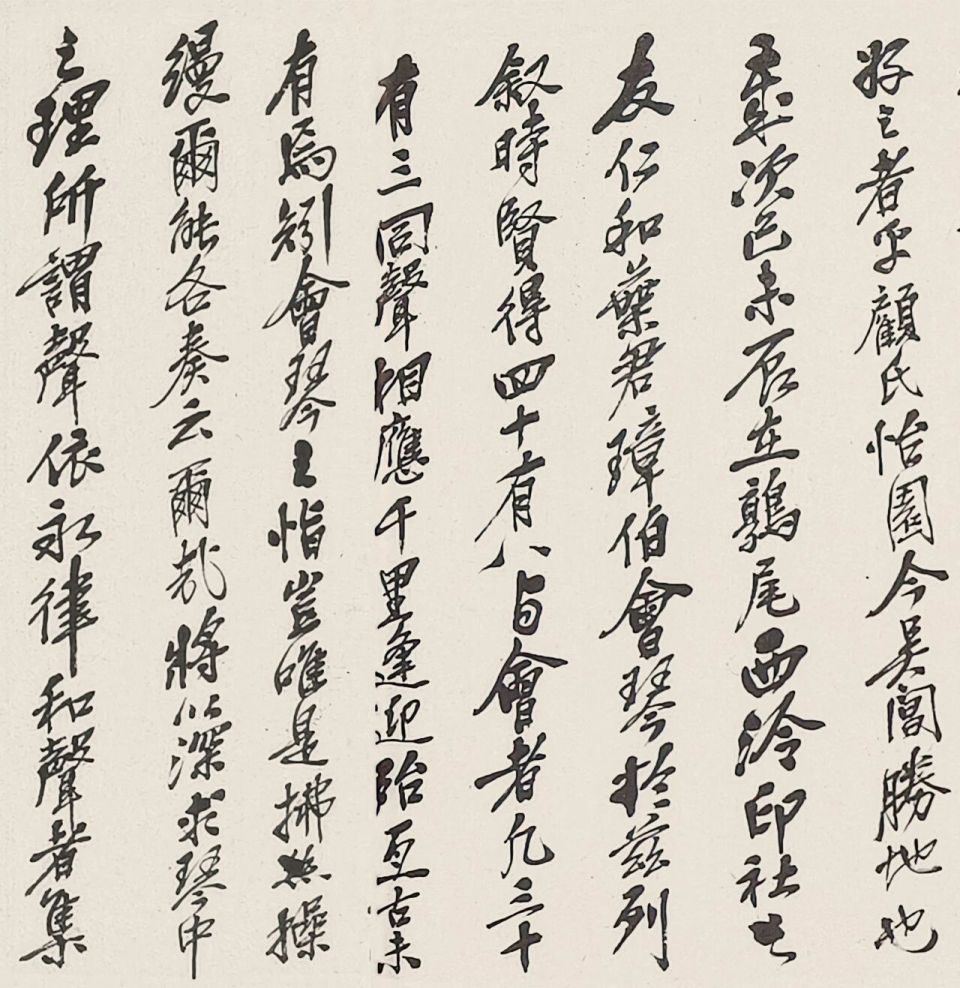 好之者乎顧氏怡園今吳閶勝地也
歲次己未辰在鶉尾西泠印社社
友仁和葉君璋伯會琴於茲列
叙時賢得四十有八与會者凡三十
有三同聲相應千里逢迎殆亙古未
有焉矧會琴之恉豈唯是拂絃操
縵爾能各奏云爾哉將以深求琴中
之理所謂聲依永律和聲者集